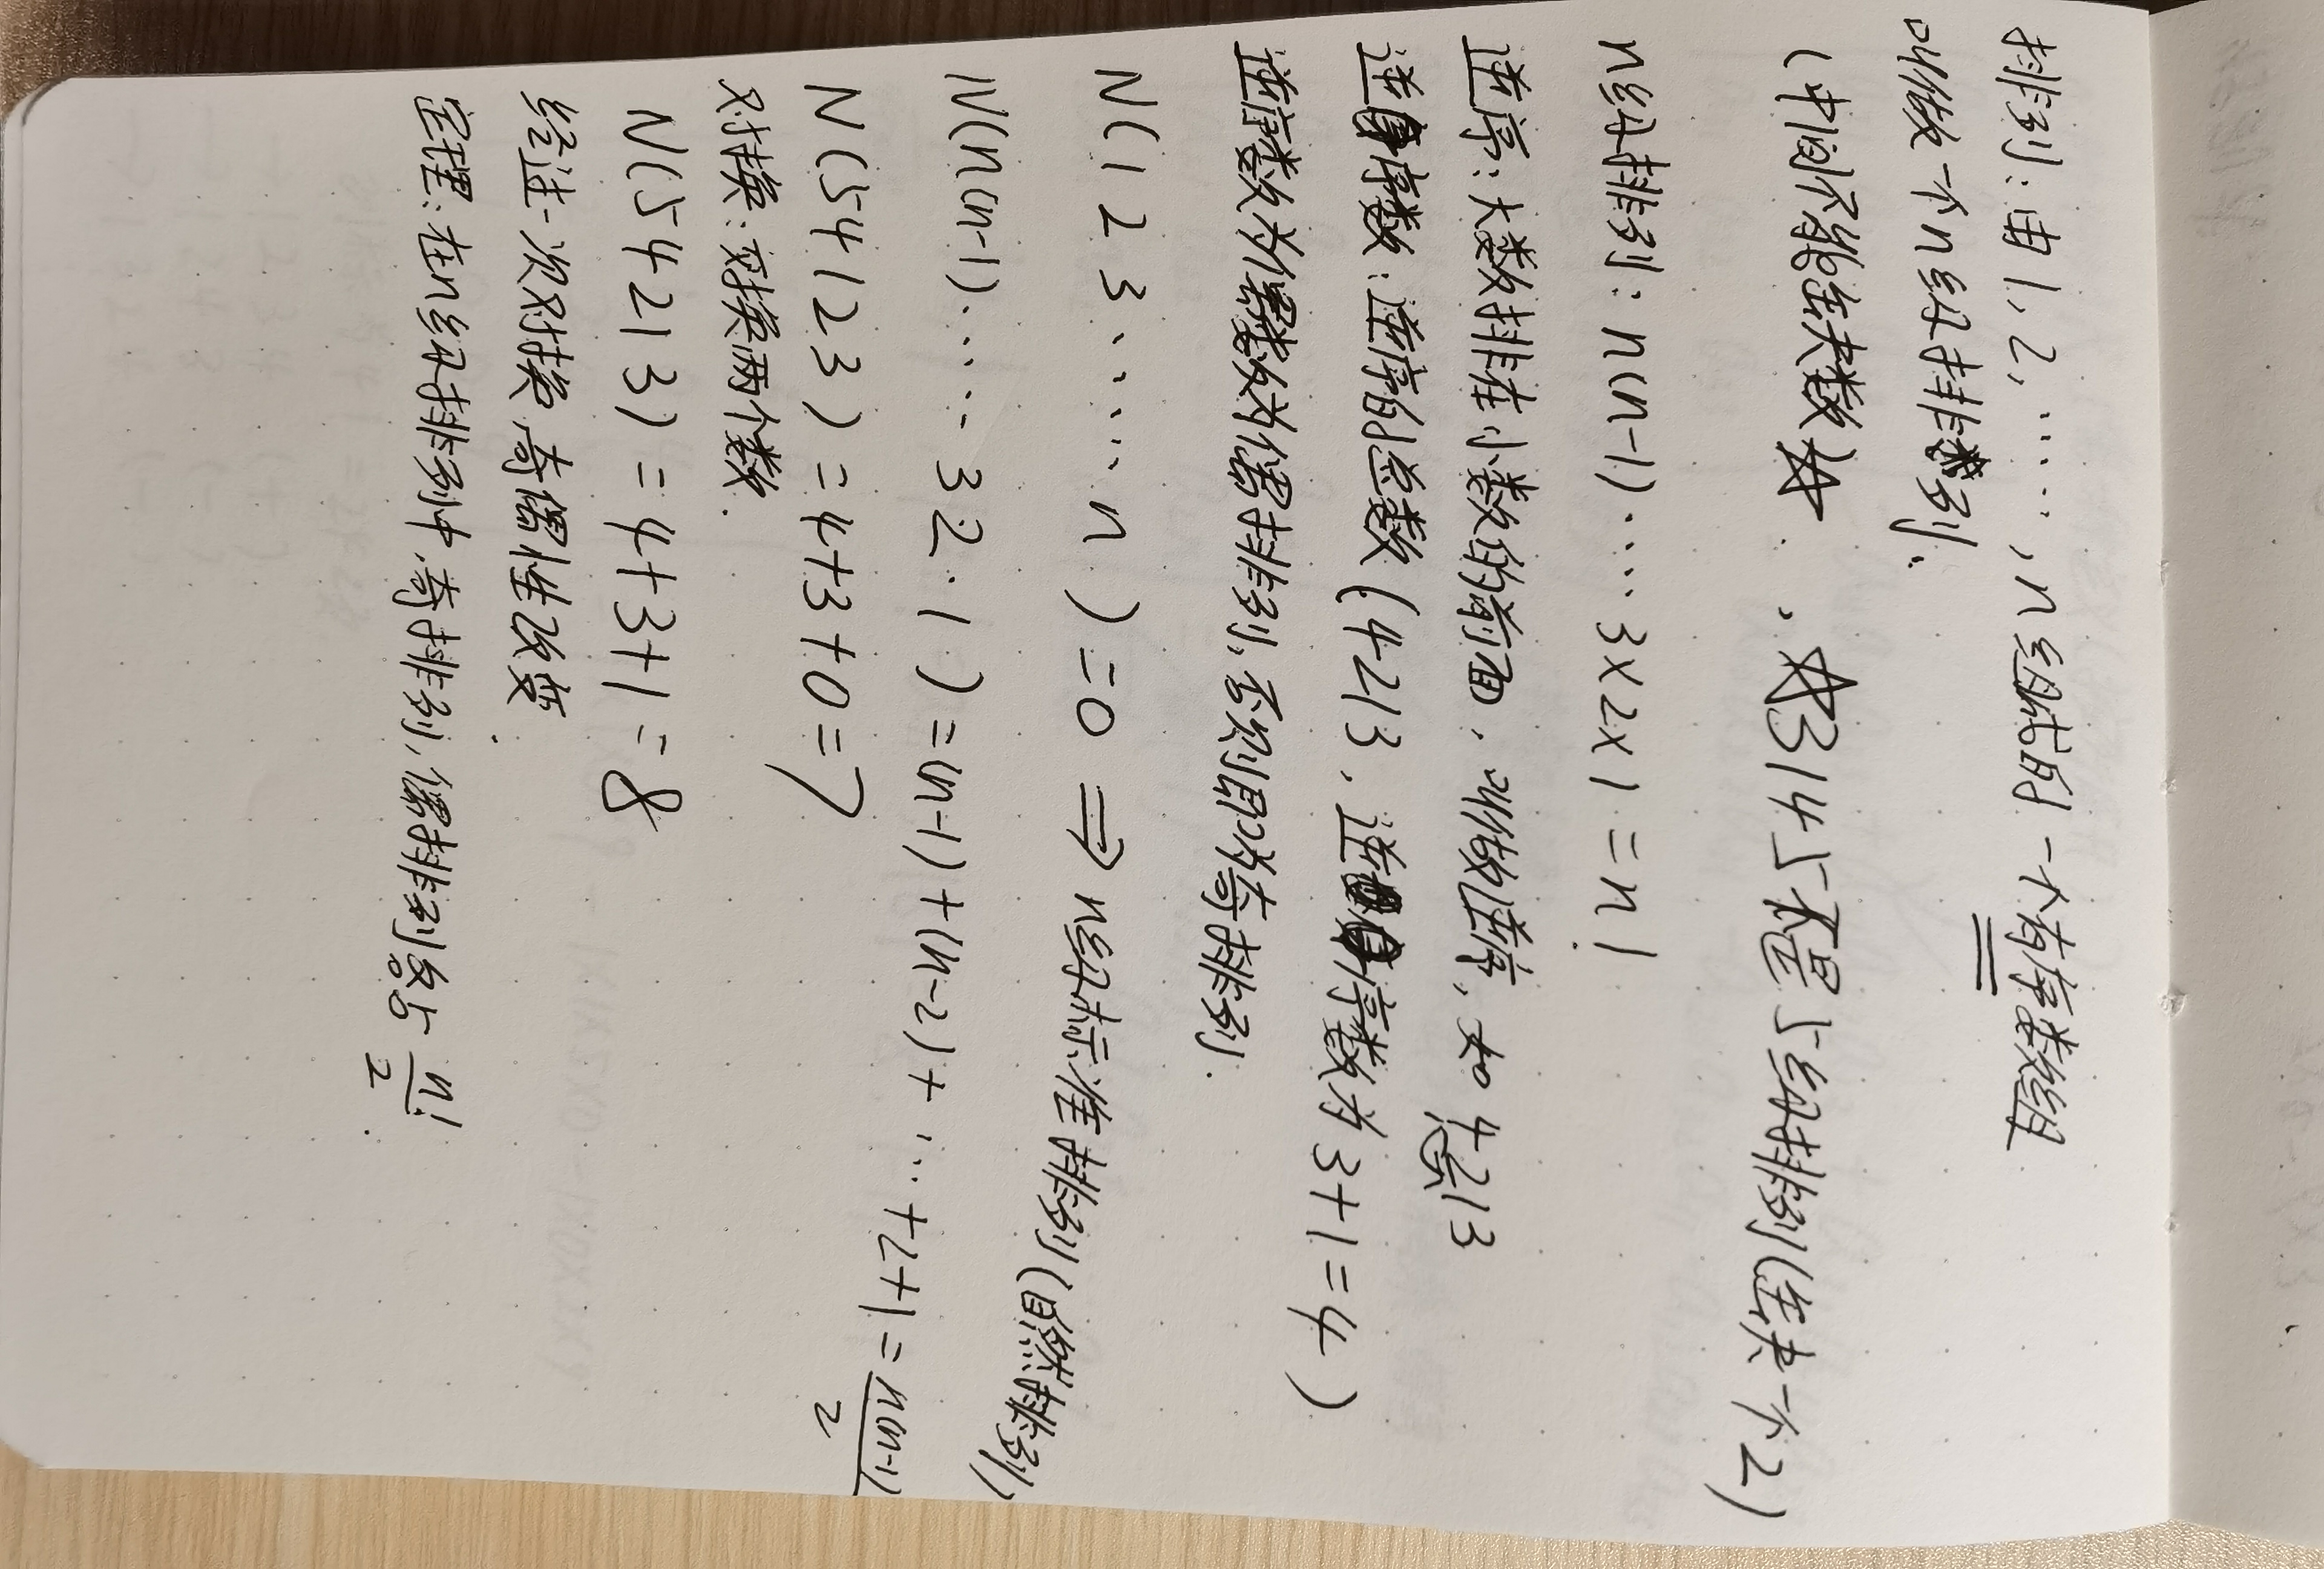 排列:由1,2,……,n组成的一个有序数组
叫做一个n级排列.
(中间不能缺数)☆. ,☆3145不是5级排列(缺一个2)
n级排列:n(n-1)……3×2×1=n!
逆序:大数排在小数的前面,叫做逆序,如4213
逆序数:逆序的总数(4213,逆序数为3+1=4)
逆序数为偶数为偶排列,否则即为奇排列.
N(123……n)=0⇒n级标准排列(自然排列)
N(n(n-1)……32·1)=(n-1)+(n-2)+…+2+1=n(n-1)/2
N(54123)=4+3+0=7
对换:交换两个数.
N(54213)=4+3+1=8
经过一次对换,奇偶性改变.
定理:在n级排列中,奇排列,偶排列各占n!/2.